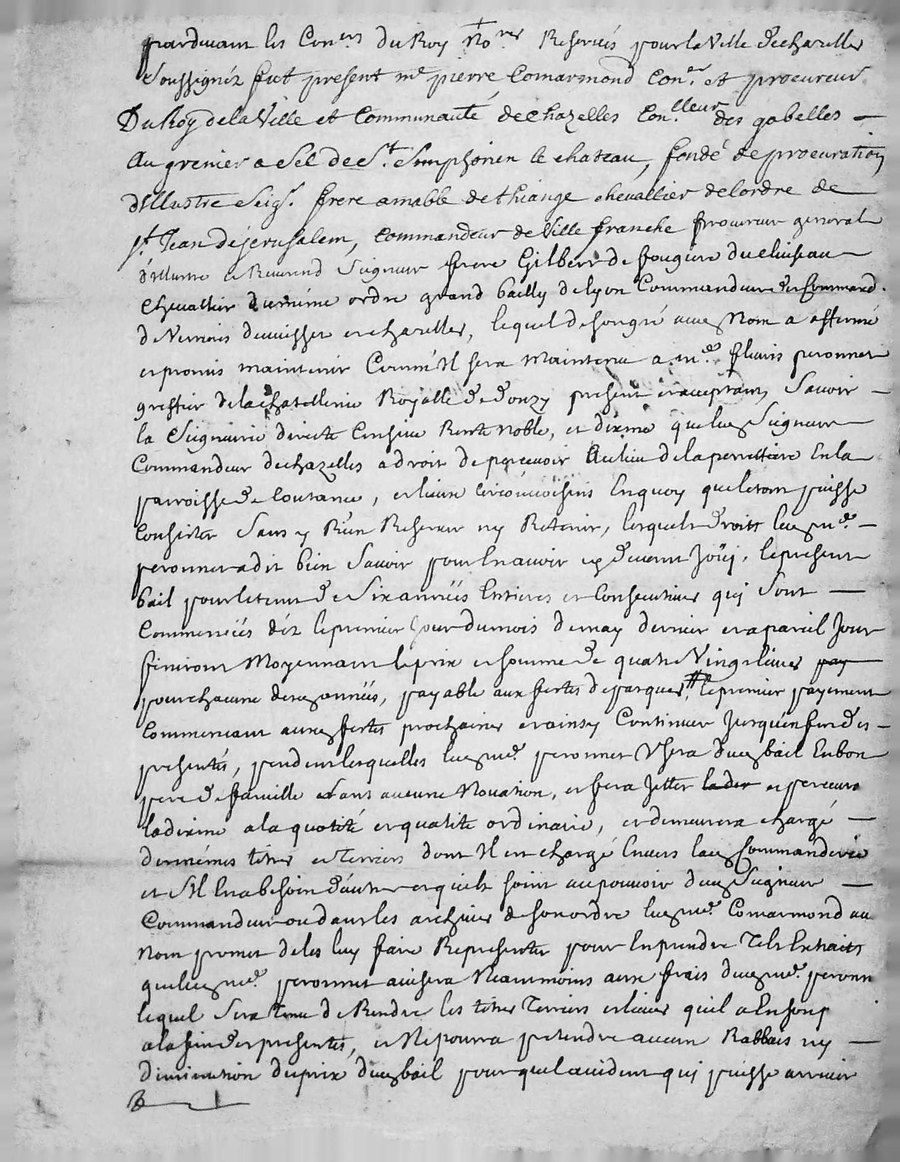 pardevant les Con.ers du Roy No.res Reservés pour la Ville de chazelles
Soussignéz fut present m.e pierre Comarmond Con.er et procureur
Du Roy de la Ville et Communauté de chazelles Con.lleur des gabelles
Au grenier a Sel de S.t Simphorien le chateau, fondé de procuration
d'Illustre Seig.r frere amable de thiange chevallier de lordre de
s.t Jean de jerusalem, Commandeur de Ville franche procureur general
d'illustre et Reverend Seigneur frere Gilbert de fougiere du cluseau
chevallier du meme ordre grand bailly de lyon Commandeur des Command.
de Verrieres et chazelles, lequel de son gré aud. Nom a affermé
et promis maintenir Comm'Il sera maintenu a m.e peronnet
greffier de la chatellenie Royalle de donzy present et acceptant, Savoir
la Seigneurie directe Censive Rente Noble, et dixme que led. Seigneur
Commandeur de chazelles a droit de percevoir Au lieu de la perrottiere En la
parroisse de Coutance, et lieux circonvoisins En quoy que le tout puisse
Consister Sans y Rien Reserver ny Retenir, lesquels droits led. m.e
peronnet a dit bien Savoir pour En avoir cy devant Joüi, le present
bail pour le tems de Six années Entieres et Consecutives qui Sont
Commencées déz le premier Jour du mois de may dernier et a pareil Jour
finiront Moyennant le prix et somme de quatre Vingt livres
pour chacune desd. années, payable aux festes de pasques, le premier payement
Commencant auxd. festes prochaines et ainsy Continuer Jusqu'en fin des
presentes, pendant lesquelles led. m.e peronnet Usera dud. bail En bon
pere de famille et sans aucune Novation, et fera Jetter et percevoir
la dixme a la quotité et qualité ordinaire, et demeurera chargé
des mémes titres et Terriers dont Il est chargé Envers lad. Commanderie
et S'Il En a besoin d'autres et qu'ils soint au pouvoir dud. Seigneur
Commandeur ou dans les archives de son ordre led. m.e Comarmond au
nom promet de les luy faire Representer pour En prendre Tels Extraits
que led. m.e peronnet avisera Neammoins aux frais dud. m.e peronnet
lequel Sera tenu de Rendre les titres Terriers et lieves qu'il a En son p
a la fin des presentes, et Ne pourra pretendre aucun Rabbais ny
diminution du prix dud. bail pour quel accident qui puisse arriver